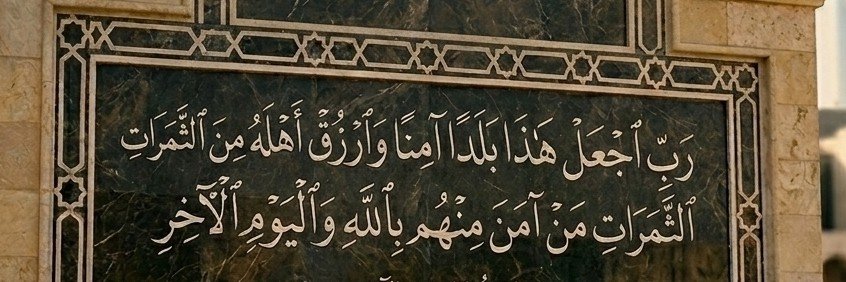 رَبِّ ٱجْعَلْ هَٰذَا بَلَدًا آمِنًا وَٱرْزُقْ أَهْلَهُ مِنَ ٱلثَّمَرَاتِ
ٱلثَّمَرَاتِ مَنْ آمَنَ مِنْهُم بِٱللَّهِ وَٱلْيَوْمِ ٱلْآخِرِ